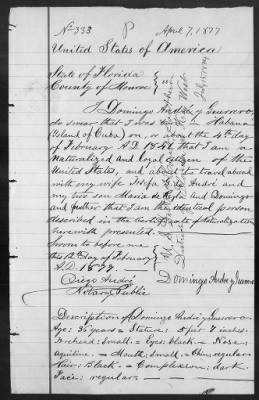 No 333 P April 7, 1877
United States of America
State of Florida
County of Monroe
I Domingo André y Guerrero,
do swear that I was born in Habana
(Island of Cuba) on, or about the 4th day
of February A.D. 1841 that I am a
Naturalized and loyal citizen of the
United States, and about to travel abroad
with my wife de André and
my two son Maria de Regla and Domingo
and further that I am the identical person
described in the Certificate of Naturalization
herewith presented
Sworn to before me
this day of February
A.D. 1877.
Diego André
Notary Public
Domingo André y Guerrero
Description of Domingo André y Guerrero
Age: 35 years = Stature: 5 feet 7 inches.
Forehead: small: = Eyes: black = Nose:
Aquiline. = Mouth: small. = Chin: regular =
Hair: Black. = Complexion: dark
Face: regular